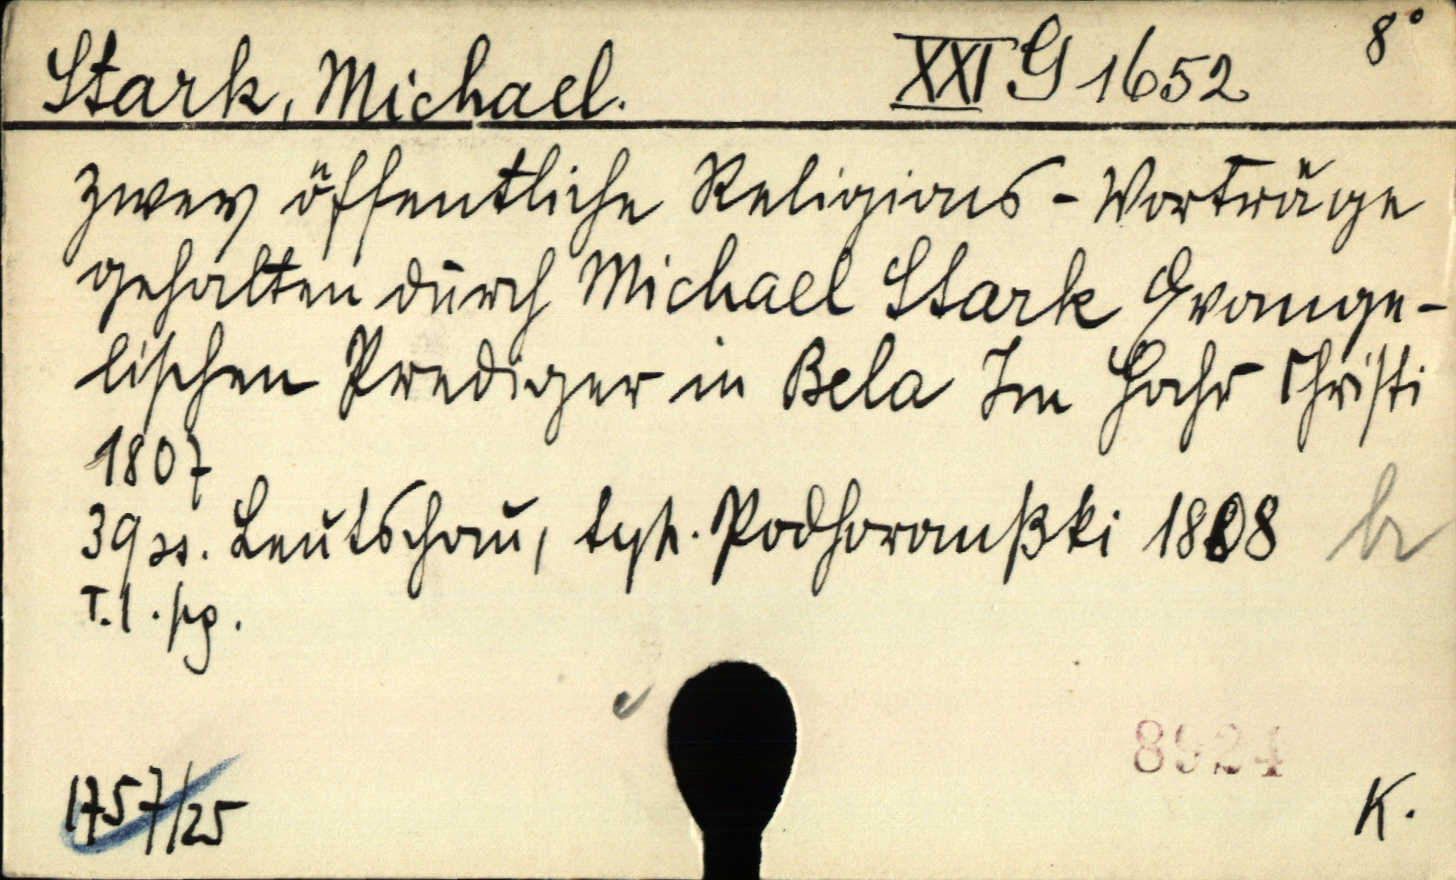 Stark, Michael. XXI G 1652 8°
Zwey öffentliche Religions-Vorträge
gehalten durch Michael Stark Evange-
lischen Prediger in Bela Im Jahr Christi
1807
39 ss. Leutschau, typ. Podhoranßki 1808 br
T. l. pg.
8924
1757/25
K.